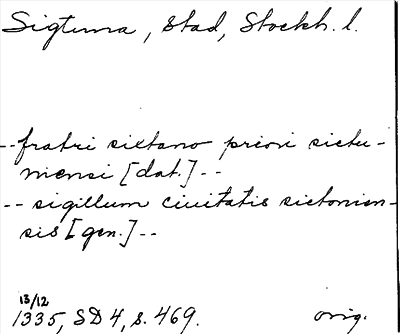 Sigtuna, stad, Stockh. l.
--fratri siltano priori sictu-
niensi [dat.]--
-- sigillum ciuitatis sictonien-
sis [gen.]--
13/12
1335, SD 4, s. 469. orig.